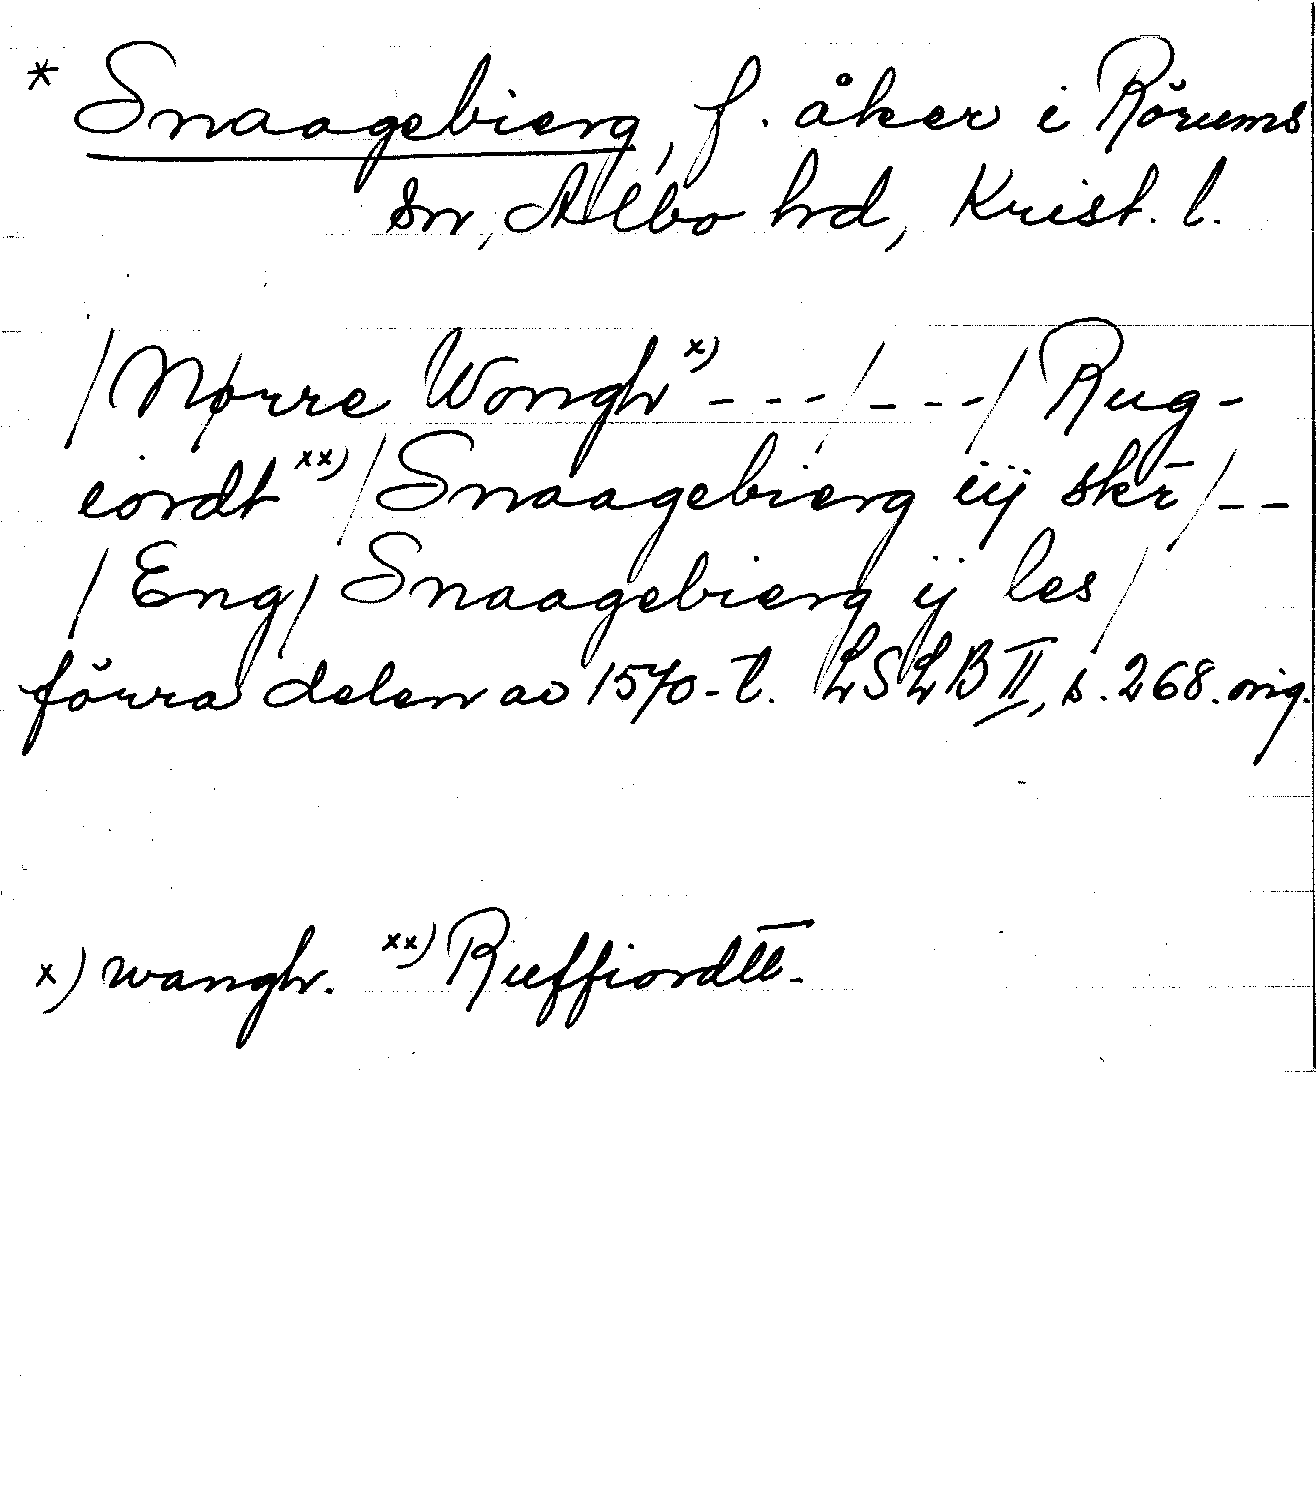 * Snaagebierg, f. åker i Rörums
sn, Albo hd, Krist. l.
/Nørre Wongh x) - - - / - - - / Rug-
iordt xx) / Snaagebierg iij skr̄ / - -
/ Eng / Snaagebierg ij les /
förra delen av 1570-t. LSLB II, s. 268. orig.
x) wangh. xx) Ruffiordtt.